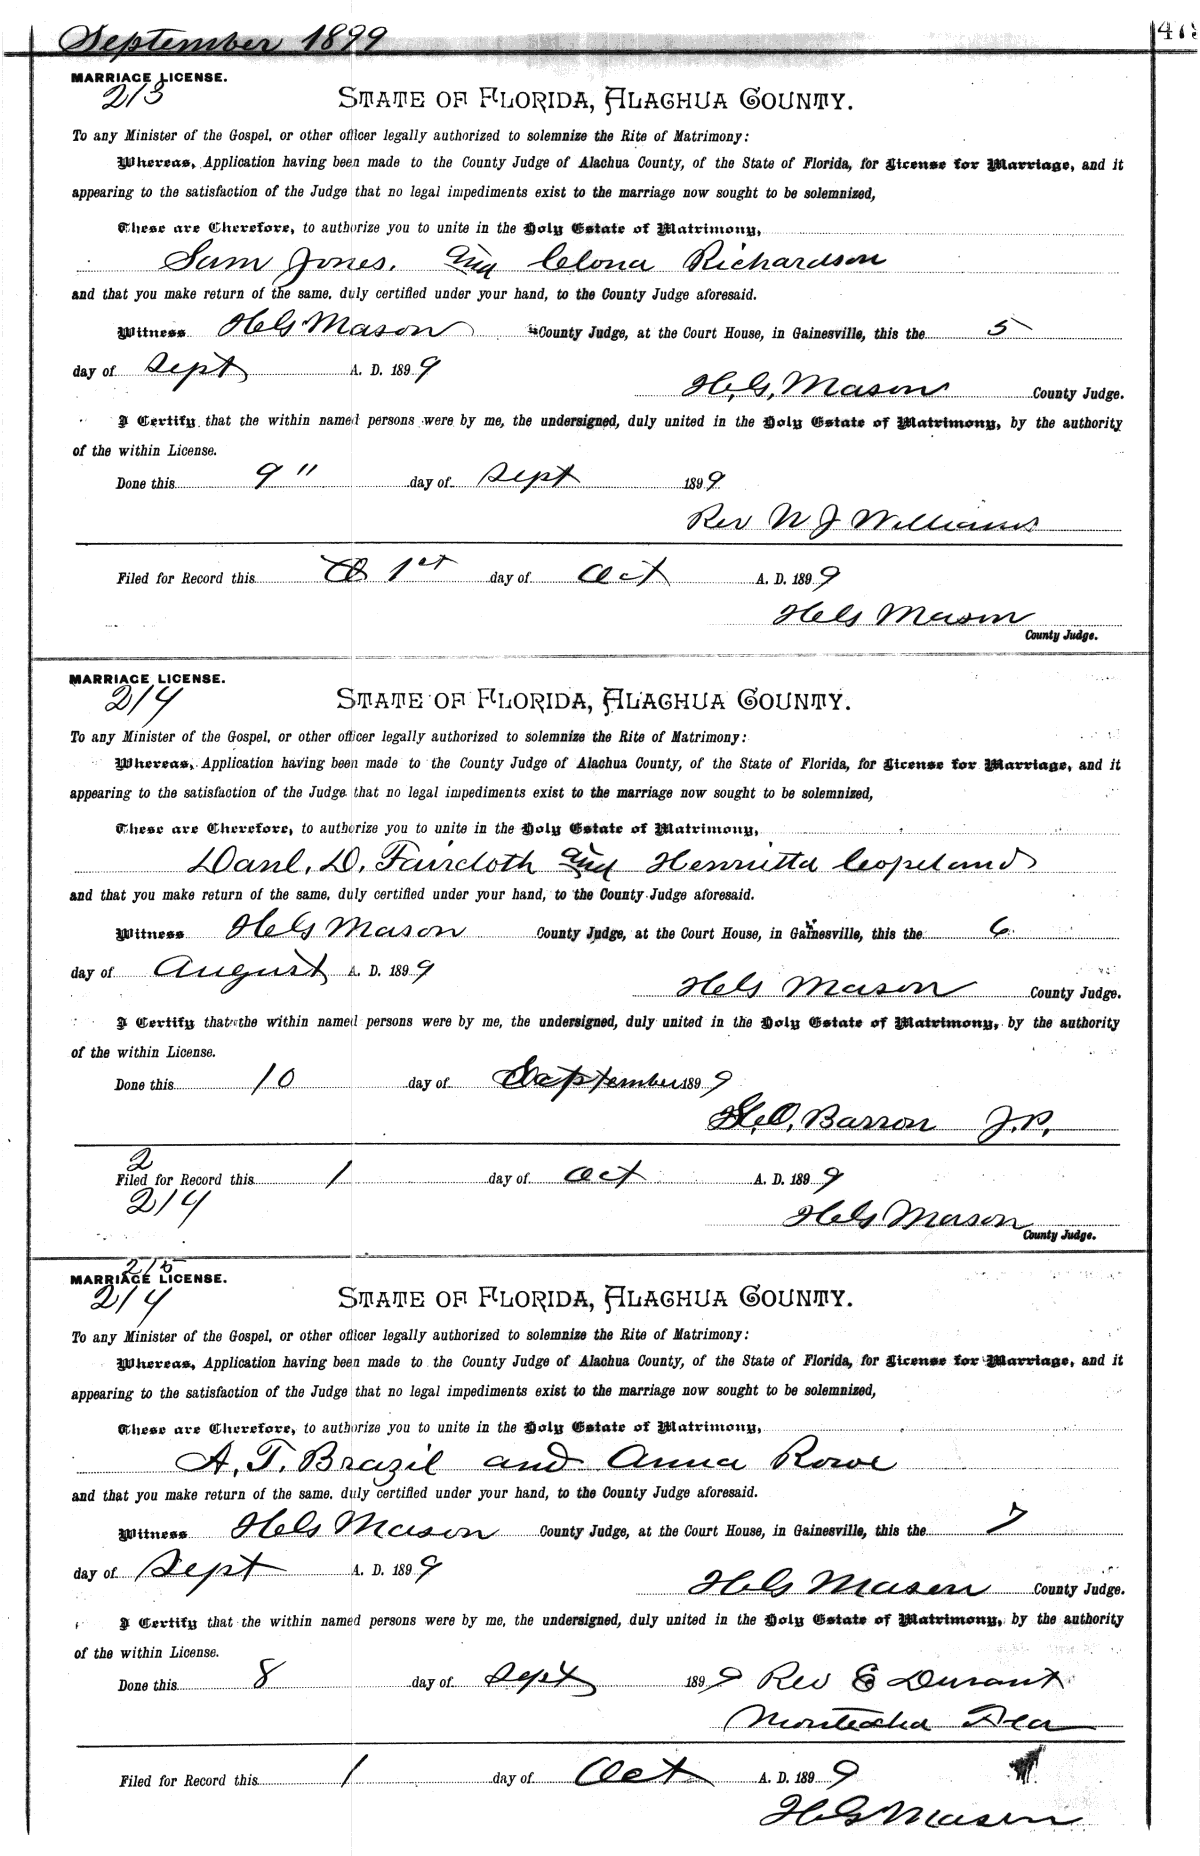 September 1899
MARRIAGE LICENSE.
213
STATE OF FLORIDA, ALACHUA COUNTY.
To any Minister of the Gospel, or other officer legally authorized to solemnize the Rite of Matrimony:
Whereas, Application having been made to the County Judge of Alachua County, of the State of Florida, for License for Marriage, and it
appearing to the satisfaction of the Judge that no legal impediments exist to the marriage now sought to be solemnized,
These are Therefore, to authorize you to unite in the Holy Estate of Matrimony,
Sam Jones. and Clona Richardson
and that you make return of the same, duly certified under your hand, to the County Judge aforesaid.
Witness H.G. Mason County Judge, at the Court House, in Gainesville, this the 5
day of Sept A. D. 1899
H.G. Mason County Judge.
I Certify that the within named persons were by me, the undersigned, duly united in the Holy Estate of Matrimony, by the authority
of the within License.
Done this 9" day of Sept 1899
Rev N J Williams
Filed for Record this 1st day of Oct A. D. 1899
H.G. Mason
County Judge.
MARRIAGE LICENSE.
214
STATE OF FLORIDA, ALACHUA COUNTY.
To any Minister of the Gospel, or other officer legally authorized to solemnize the Rite of Matrimony:
Whereas, Application having been made to the County Judge of Alachua County, of the State of Florida, for License for Marriage, and it
appearing to the satisfaction of the Judge that no legal impediments exist to the marriage now sought to be solemnized,
These are Therefore, to authorize you to unite in the Holy Estate of Matrimony,
Danl. D. Faircloth and Henrietta Copeland
and that you make return of the same, duly certified under your hand, to the County Judge aforesaid.
Witness H G Mason County Judge, at the Court House, in Gainesville, this the 6
day of August A. D. 1899
H G Mason County Judge.
I Certify that the within named persons were by me, the undersigned, duly united in the Holy Estate of Matrimony, by the authority
of the within License.
Done this 10 day of September 1899
Barron J.P.
2
Filed for Record this 1 day of Oct A. D. 1899
214
H G Mason
County Judge.
215
MARRIAGE LICENSE.
214
STATE OF FLORIDA, ALACHUA COUNTY.
To any Minister of the Gospel, or other officer legally authorized to solemnize the Rite of Matrimony:
Whereas, Application having been made to the County Judge of Alachua County, of the State of Florida, for License for Marriage, and it
appearing to the satisfaction of the Judge that no legal impediments exist to the marriage now sought to be solemnized,
These are Therefore, to authorize you to unite in the Holy Estate of Matrimony,
A. T. Brazil and Anna Rowe
and that you make return of the same, duly certified under your hand, to the County Judge aforesaid.
Witness H G Mason County Judge, at the Court House, in Gainesville, this the 7
day of Sept A. D. 1899
H G Mason County Judge.
I Certify that the within named persons were by me, the undersigned, duly united in the Holy Estate of Matrimony, by the authority
of the within License.
Done this 8 day of Sept 1899 Rev E Durant
Monteocha Fla
Filed for Record this 1 day of Oct A. D. 1899
H G Mason